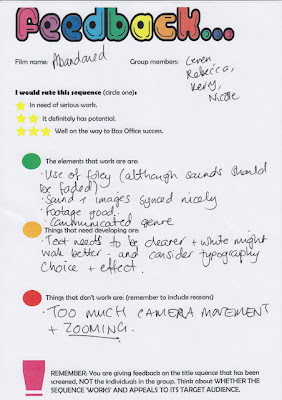 Feedback...
Film name: Abandoned Group members: Leven,
Rebecca,
Kerry,
Nicole
I would rate this sequence (circle one):
In need of serious work.
It definitely has potential.
Well on the way to Box Office success.
The elements that work are are:
• Use of foley (although sounds should
be faded)
• Sound + images synced nicely
• Footage good.
• Communicated genre
Things that need developing are:
• Text needs to be clearer + white might
work better - and consider typography
choice + effect.
Things that don't work are: (remember to include reasons)
• TOO MUCH CAMERA MOVEMENT
+ ZOOMING.
REMEMBER: You are giving feedback on the title squence that has
been screened, NOT the individuals in the group. Think about WHETHER THE
SEQUENCE 'WORKS' AND APPEALS TO ITS TARGET AUDIENCE.